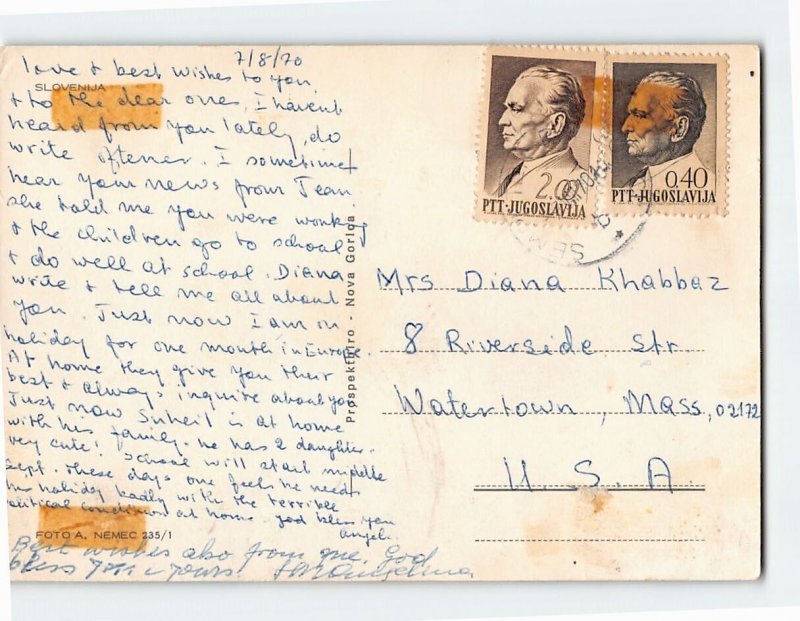 7/8/70
love & best wishes to you
SLOVENIJA
& to the dear ones, I havent
heard from you lately, do
write oftener. I sometimes
hear your news from Jean
she told me you were working
& the children go to school
& do well at school. Diana
write & tell me all about
you. Just now I am in
holiday for one month in Europe.
At home they give you their
best & always inquire about you
Just now Suheil is at home
with his family. he has 2 daughters.
very cute! School will start middle
Sept. These days one feels he needs
his holiday badly with the terrible
political condition at home. god bless you
Angele
FOTO A. NEMEC 235/1
Best wishes also from me. God
bless you & yours.
Prospektbiro - Nova Gorica
2.00
PTT·JUGOSLAVIJA
0.40
PTT·JUGOSLAVIJA
Mrs Diana Khabbaz
8 Riverside Str
Watertown, Mass, 02172
U. S. A.